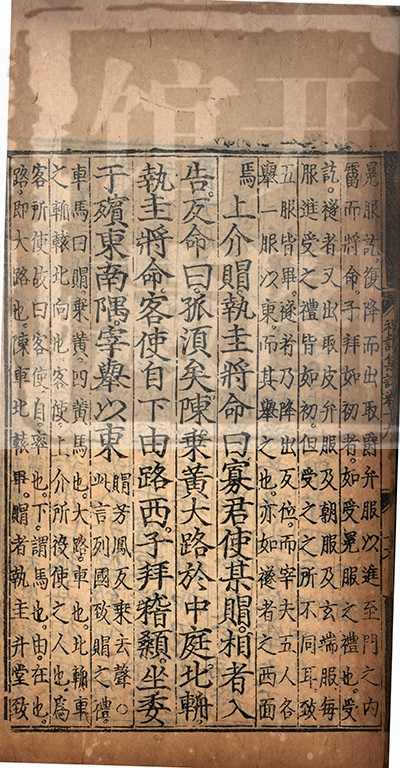 冕服訖復降而出取爵弁服以進至門之內
霤而將命子拜如初者如受冕服之禮也受
訖襚者又出取皮弁服及朝服及玄端服每
服進受之禮皆如初但受之之所不同耳致
五服皆畢襚者乃降出反位而宰夫五人各
舉一服以東而其舉之也亦如襚者之西面
焉 上介賵執圭將命曰寡君使某賵相者入
告反命曰孤湏矣陳乘黃大路於中庭北輈
執圭將命客使自下由路西子拜稽顙坐委
于殯東南隅宰舉以東
賵芳鳳反乘去聲○
此言列國致賵之禮
車馬曰賵乘黃四黃馬也大路車也北輈車
之輈轅北向也客使上介所役使之人也爲
客所使故曰客使自率也下謂馬也由在也
路即大路也陳車北轅畢賵者執圭升堂致
館